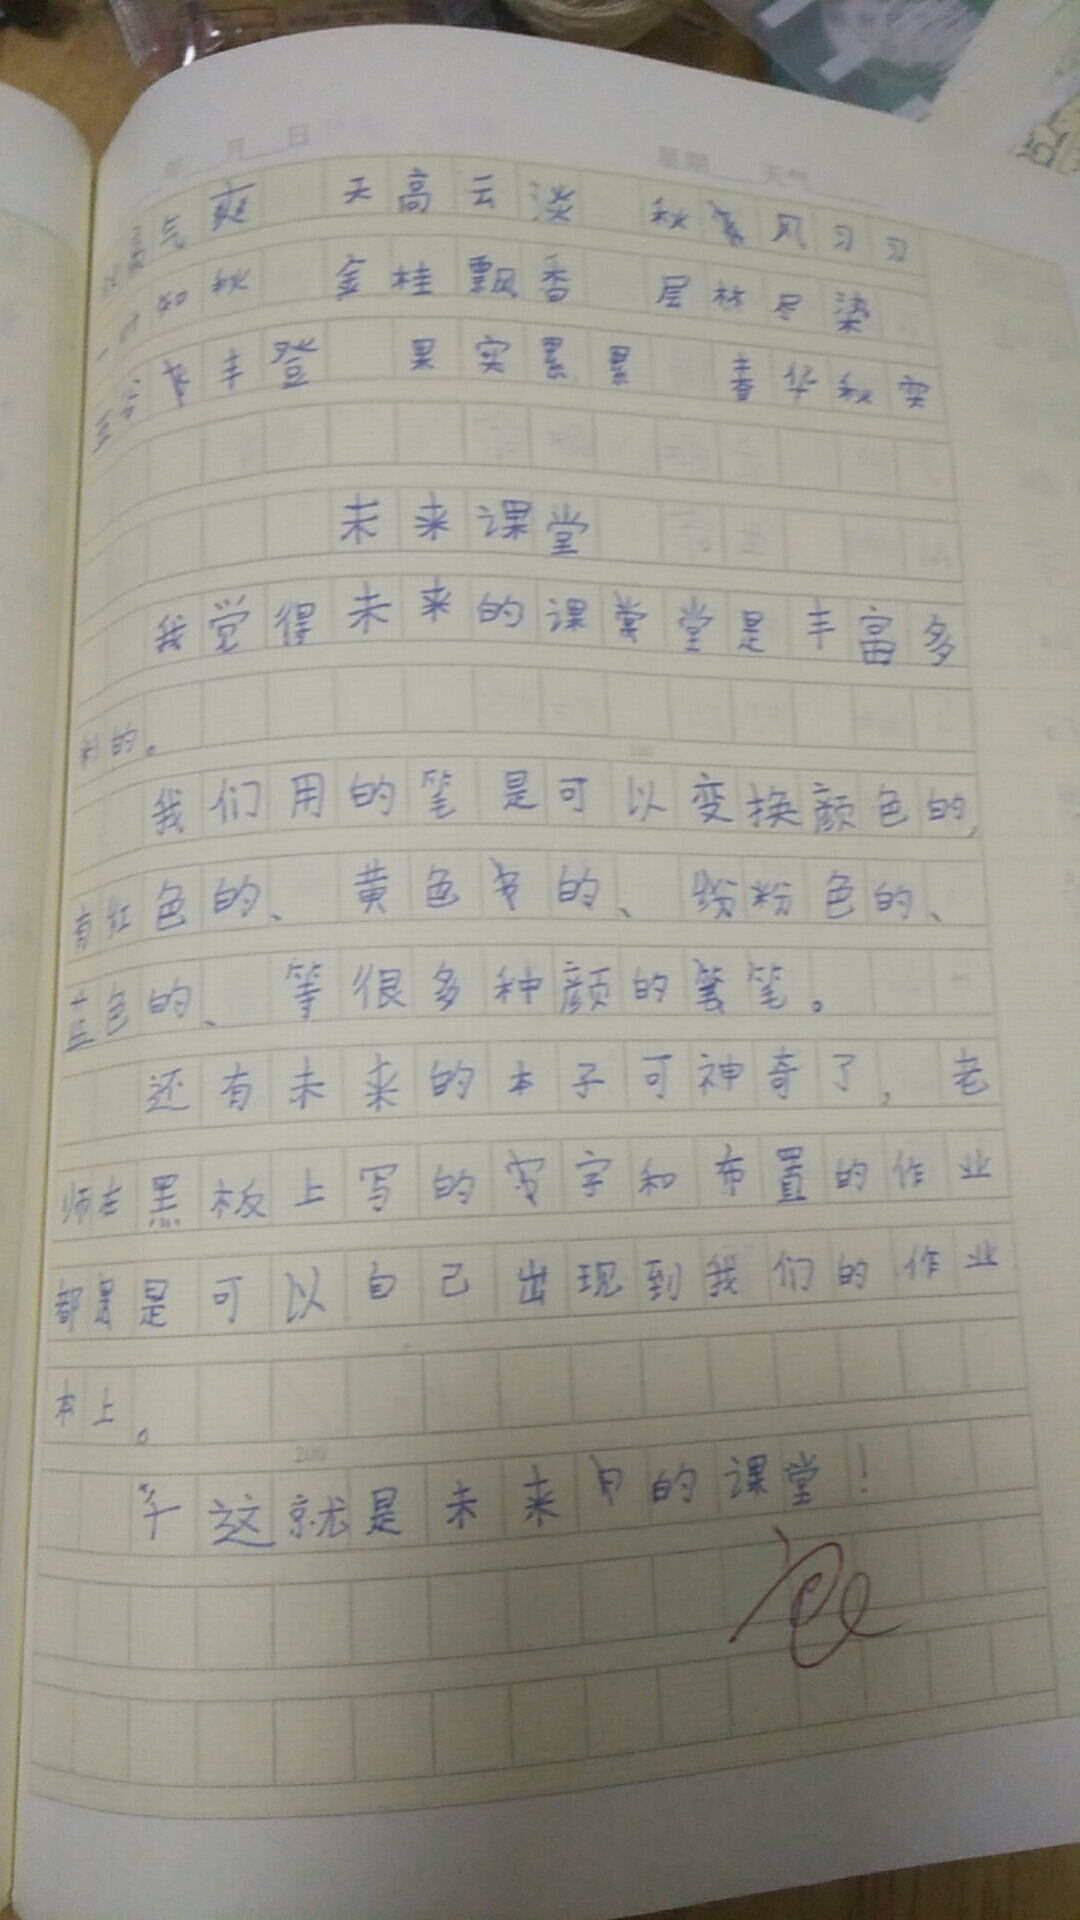 年 月 日 星期 天气
秋高气爽 天高云淡 秋风习习
一叶知秋 金桂飘香 层林尽染
五谷丰登 果实累累 春华秋实
未来课堂
我觉得未来的课堂是丰富多
彩的。
我们用的笔是可以变换颜色的,
有红色的、黄色的、粉色的、
蓝色的、等很多种颜的笔。
还有未来的本子可神奇了,老
师在黑板上写的字和布置的作业
都是可以自己出现到我们的作业
本上。
200
这就是未来的课堂!